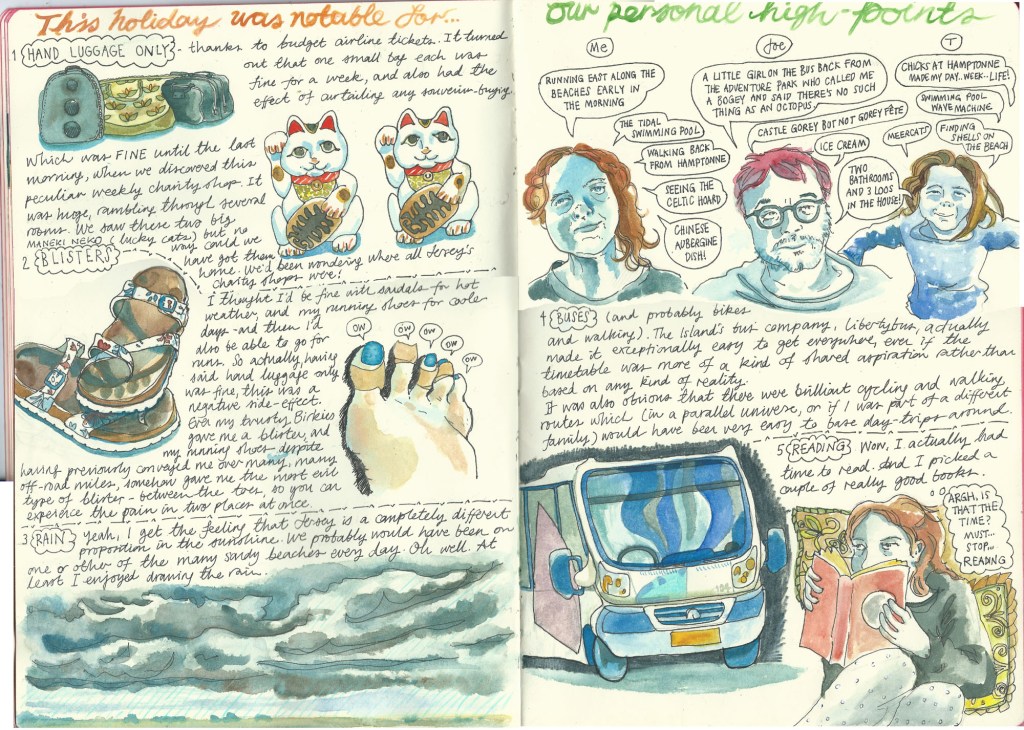 This holiday was notable for...
1 HAND LUGGAGE ONLY - thanks to budget airline tickets. It turned
out that one small bag each was
fine for a week, and also had the
effect of curtailing any souvenir-buying.
Which was FINE until the last
morning, when we discovered this
peculiar weekly charity shop. It
was huge, rambling through several
rooms. We saw these two big
MANEKI NEKO (lucky cats) but no
way could we
have got them
home. We'd been wondering where all Jersey's
charity shops were!
2 BLISTERS
I thought I'd be fine with sandals for hot
weather, and my running shoes for cooler
days - and then I'd
also be able to go for
runs. So actually, having
said hand luggage only
was fine, this was a
negative side-effect.
Even my trusty Birkies
gave me a blister, and
my running shoes - despite
having previously conveyed me over many, many
off-road miles, somehow gave me the most evil
type of blister - between the toes, so you can
experience the pain in two places at once.
OW
OW
OW
OW
3 RAIN Yeah, I get the feeling that Jersey is a completely different
proposition in the sunshine. We probably would have been on
one or other of the many sandy beaches every day. Oh well. At
least I enjoyed drawing the rain.
Our personal high-points
Me
RUNNING EAST ALONG THE
BEACHES EARLY IN
THE MORNING
THE TIDAL
SWIMMING POOL
WALKING BACK
FROM HAMPTONNE
SEEING THE
CELTIC HOARD
CHINESE
AUBERGINE
DISH!
Joe
A LITTLE GIRL ON THE BUS BACK FROM
THE ADVENTURE PARK WHO CALLED ME
A BOGEY AND SAID THERE'S NO SUCH
THING AS AN OCTOPUS.
CASTLE GOREY BUT NOT GOREY FÊTE
ICE CREAM
TWO
BATHROOMS
AND 3 LOOS
IN THE HOUSE!
T
CHICKS AT HAMPTONNE
MADE MY DAY..WEEK..LIFE!
SWIMMING POOL
WAVE MACHINE
MEERCATS
FINDING
SHELLS ON
THE BEACH
4 BUSES (and probably bikes
and walking). The Island's bus company, Libertybus, actually
made it exceptionally easy to get everywhere, even if the
timetable was more of a kind of shared aspiration rather than
based on any kind of reality.
It was also obvious that there were brilliant cycling and walking
routes which (in a parallel universe, or if I was part of a different
family) would have been very easy to base day-trips around.
5 READING Wow, I actually had
time to read. And I picked a
couple of really good books.
ARGH, IS
THAT THE
TIME?
MUST...
STOP...
READING